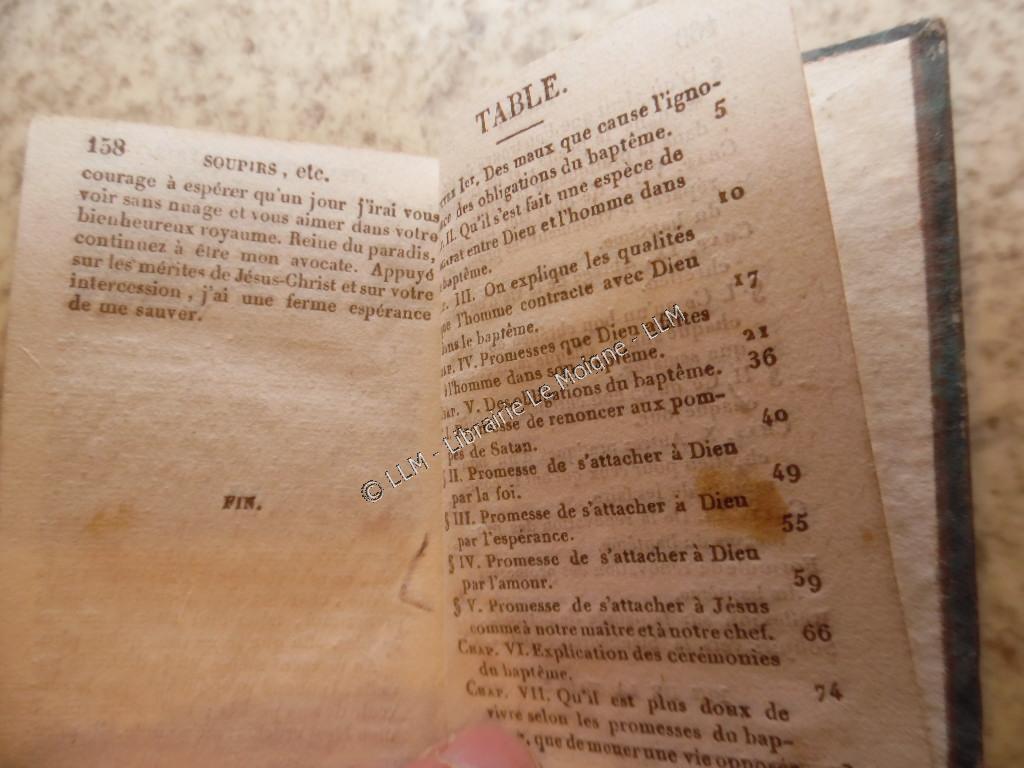 158
SOUPIRS, etc.
courage à espérer qu'un jour j'irai vous
voir sans nuage et vous aimer dans votre
bienheureux royaume. Reine du paradis,
continuez à être mon avocate. Appuyé
sur les mérites de Jésus-Christ et sur votre
intercession, j'ai une ferme espérance
de me sauver.
FIN.
TABLE.
Ier. Des maux que cause l'igno-
des obligations du baptême. 5
II. Qu'il s'est fait une espèce de
entre Dieu et l'homme dans
baptême. 10
III. On explique les qualités
l'homme contracte avec Dieu
le baptême. 17
IV. Promesses que Dieu
à l'homme dans baptême. 21
V. Des obligations du baptême. 36
de renoncer aux pom-
pes de Satan. 40
II. Promesse de s'attacher à Dieu
par la foi. 49
§ III. Promesse de s'attacher à Dieu
par l'espérance. 55
§ IV. Promesse de s'attacher à Dieu
par l'amour. 59
§ V. Promesse de s'attacher à Jésus
comme à notre maître et à notre chef. 66
CHAP. VI. Explication des cérémonies
du baptême. 74
CHAP. VII. Qu'il est plus doux de
vivre selon les promesses du bap-
que de mener une vie
© LLM - Librairie Le Moigne - LLM